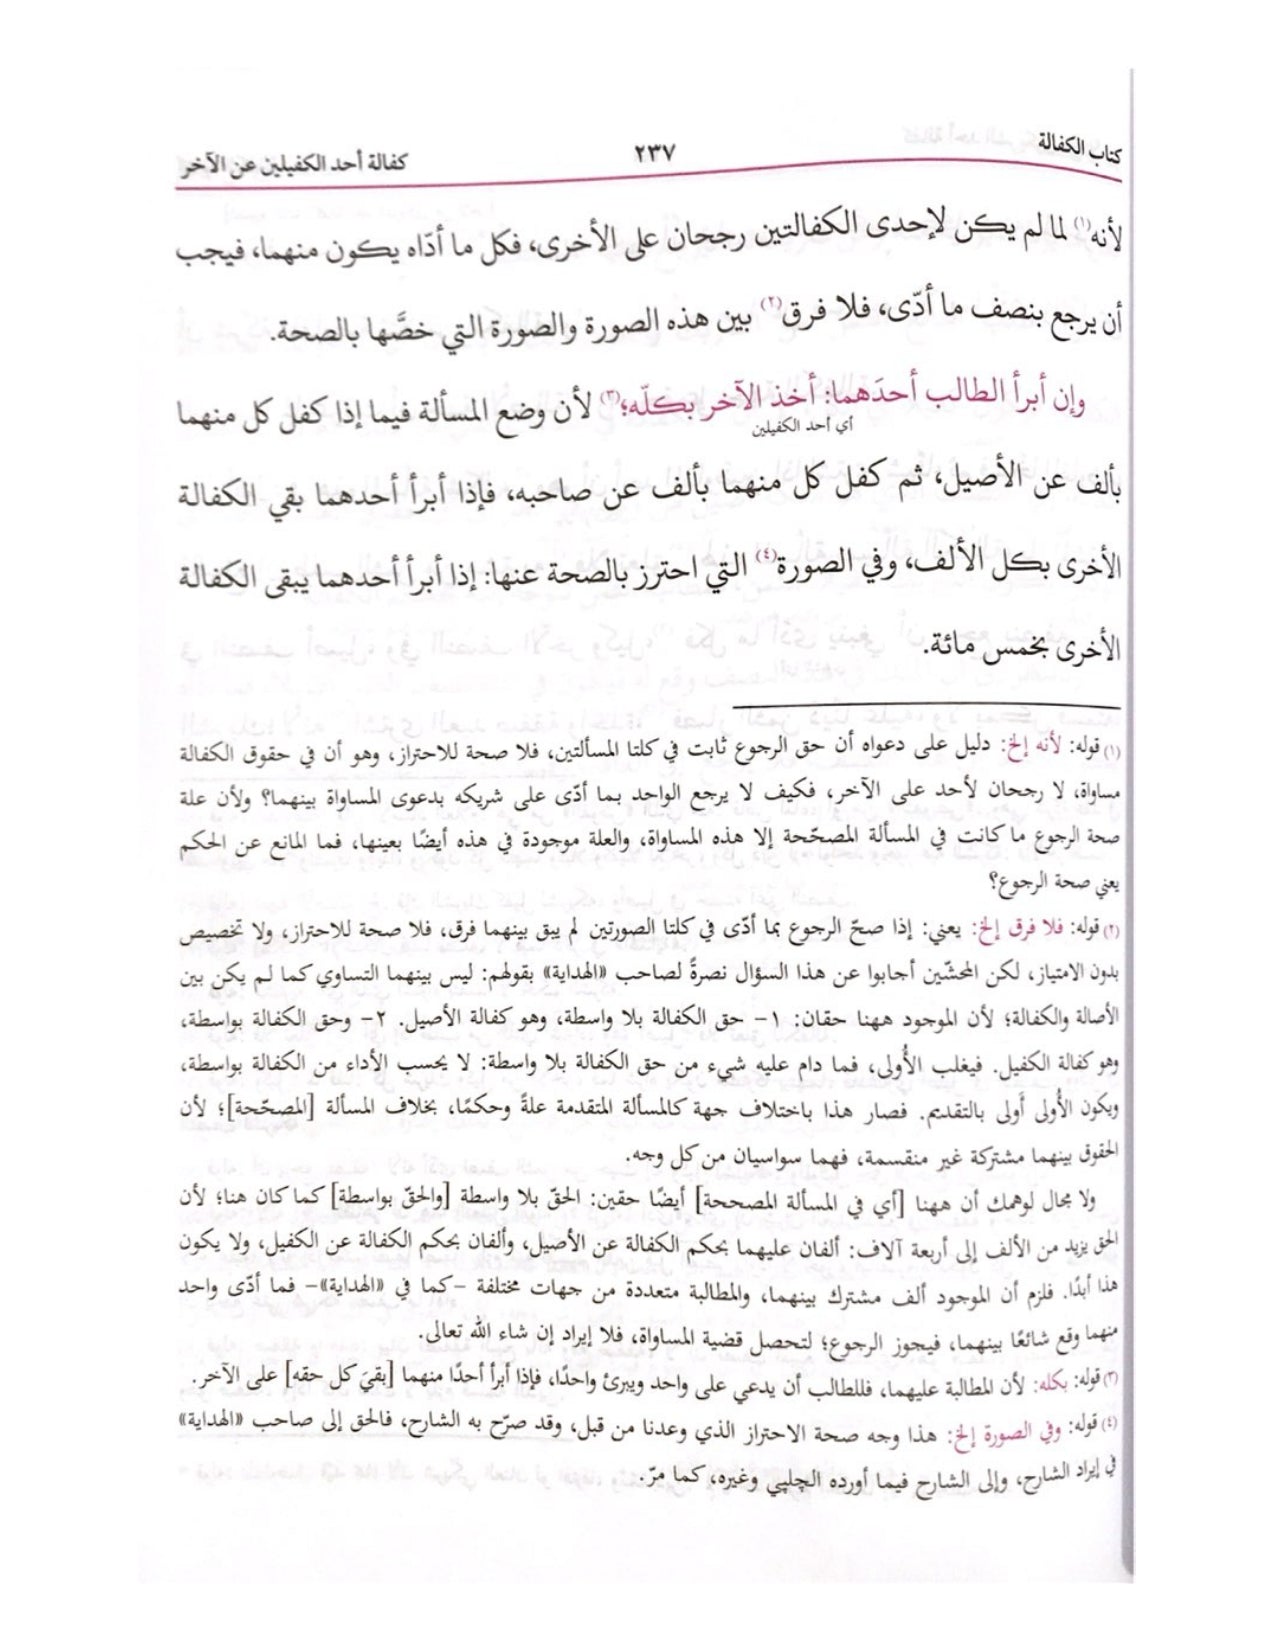 كتاب الكفالة
٢٣٧
كفالة أحد الكفيلين عن الآخر
لأنه(١) لما لم يكن لإحدى الكفالتين رجحان على الأخرى، فكل ما أدّاه يكون منهما، فيجب
أن يرجع بنصف ما أدّى، فلا فرق(٢) بين هذه الصورة والصورة التي خصَّها بالصحة.
وإن أبرأ الطالب أحدَهما: أخذ الآخر بكلّه؛(٣) لأن وضع المسألة فيما إذا كفل كل منهما
أي أحد الكفيلين
بألف عن الأصيل، ثم كفل كل منهما بألف عن صاحبه، فإذا أبرأ أحدهما بقي الكفالة
الأخرى بكل الألف، وفي الصورة(٤) التي احترز بالصحة عنها: إذا أبرأ أحدهما يبقى الكفالة
الأخرى بخمس مائة.
(١) قوله: لأنه إلخ: دليل على دعواه أن حق الرجوع ثابت في كلتا المسألتين، فلا صحة للاحتراز، وهو أن في حقوق الكفالة
مساواة، لا رجحان لأحد على الآخر، فكيف لا يرجع الواحد بما أدّى على شريكه بدعوى المساواة بينهما؟ ولأن علة
صحة الرجوع ما كانت في المسألة المصحّحة إلا هذه المساواة، والعلة موجودة في هذه أيضًا بعينها، فما المانع عن الحكم
يعني صحة الرجوع؟
(٢) قوله: فلا فرق إلخ: يعني: إذا صحّ الرجوع بما أدّى في كلتا الصورتين لم يبق بينهما فرق، فلا صحة للاحتراز، ولا تخصيص
بدون الامتياز، لكن المحشّين أجابوا عن هذا السؤال نصرةً لصاحب «الهداية» بقولهم: ليس بينهما التساوي كما لم يكن بين
الأصالة والكفالة؛ لأن الموجود ههنا حقان: ١- حق الكفالة بلا واسطة، وهو كفالة الأصيل. ٢- وحق الكفالة بواسطة،
وهو كفالة الكفيل. فيغلب الأُولى، فما دام عليه شيء من حق الكفالة بلا واسطة: لا يحسب الأداء من الكفالة بواسطة،
ويكون الأُولى أَولى بالتقديم. فصار هذا باختلاف جهة كالمسألة المتقدمة علةً وحكمًا، بخلاف المسألة [المصحّحة]؛ لأن
الحقوق بينهما مشتركة غير منقسمة، فهما سواسيان من كل وجه.
ولا مجال لوهمك أن ههنا [أي في المسألة المصححة] أيضًا حقين: الحقّ بلا واسطة [والحقّ بواسطة] كما كان هنا؛ لأن
الحق يزيد من الألف إلى أربعة آلاف: ألفان عليهما بحكم الكفالة عن الأصيل، وألفان بحكم الكفالة عن الكفيل، ولا يكون
هذا أبدًا. فلزم أن الموجود ألف مشترك بينهما، والمطالبة متعددة من جهات مختلفة -كما في «الهداية»- فما أدّى واحد
منهما وقع شائعًا بينهما، فيجوز الرجوع؛ لتحصل قضية المساواة، فلا إيراد إن شاء الله تعالى.
(٣) قوله: بكله: لأن المطالبة عليهما، فللطالب أن يدعي على واحد ويبرئ واحدًا، فإذا أبرأ أحدًا منهما [بقيَ كل حقه] على الآخر.
(٤) قوله: وفي الصورة إلخ: هذا وجه صحة الاحتراز الذي وعدنا من قبل، وقد صرّح به الشارح، فالحق إلى صاحب «الهداية»
في إيراد الشارح، وإلى الشارح فيما أورده الچلپي وغيره، كما مرّ.